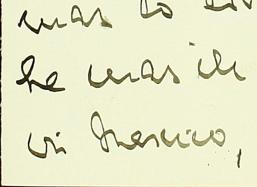 was to
he was ill
in Mexico,